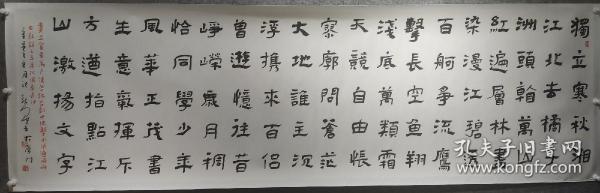 獨立寒秋湘
江北去橘子
洲頭看萬山
紅遍層林盡
染漫江碧透
百舸爭流鷹
擊長空魚翔
淺底萬類霜
天競自由悵
寥廓問蒼茫
大地誰主沉
浮攜來百侶
曾遊憶往昔
崢嶸歲月稠
恰同學少年
風華正茂書
生意氣揮斥
方遒指點江
山激揚文字
孔夫子旧书网